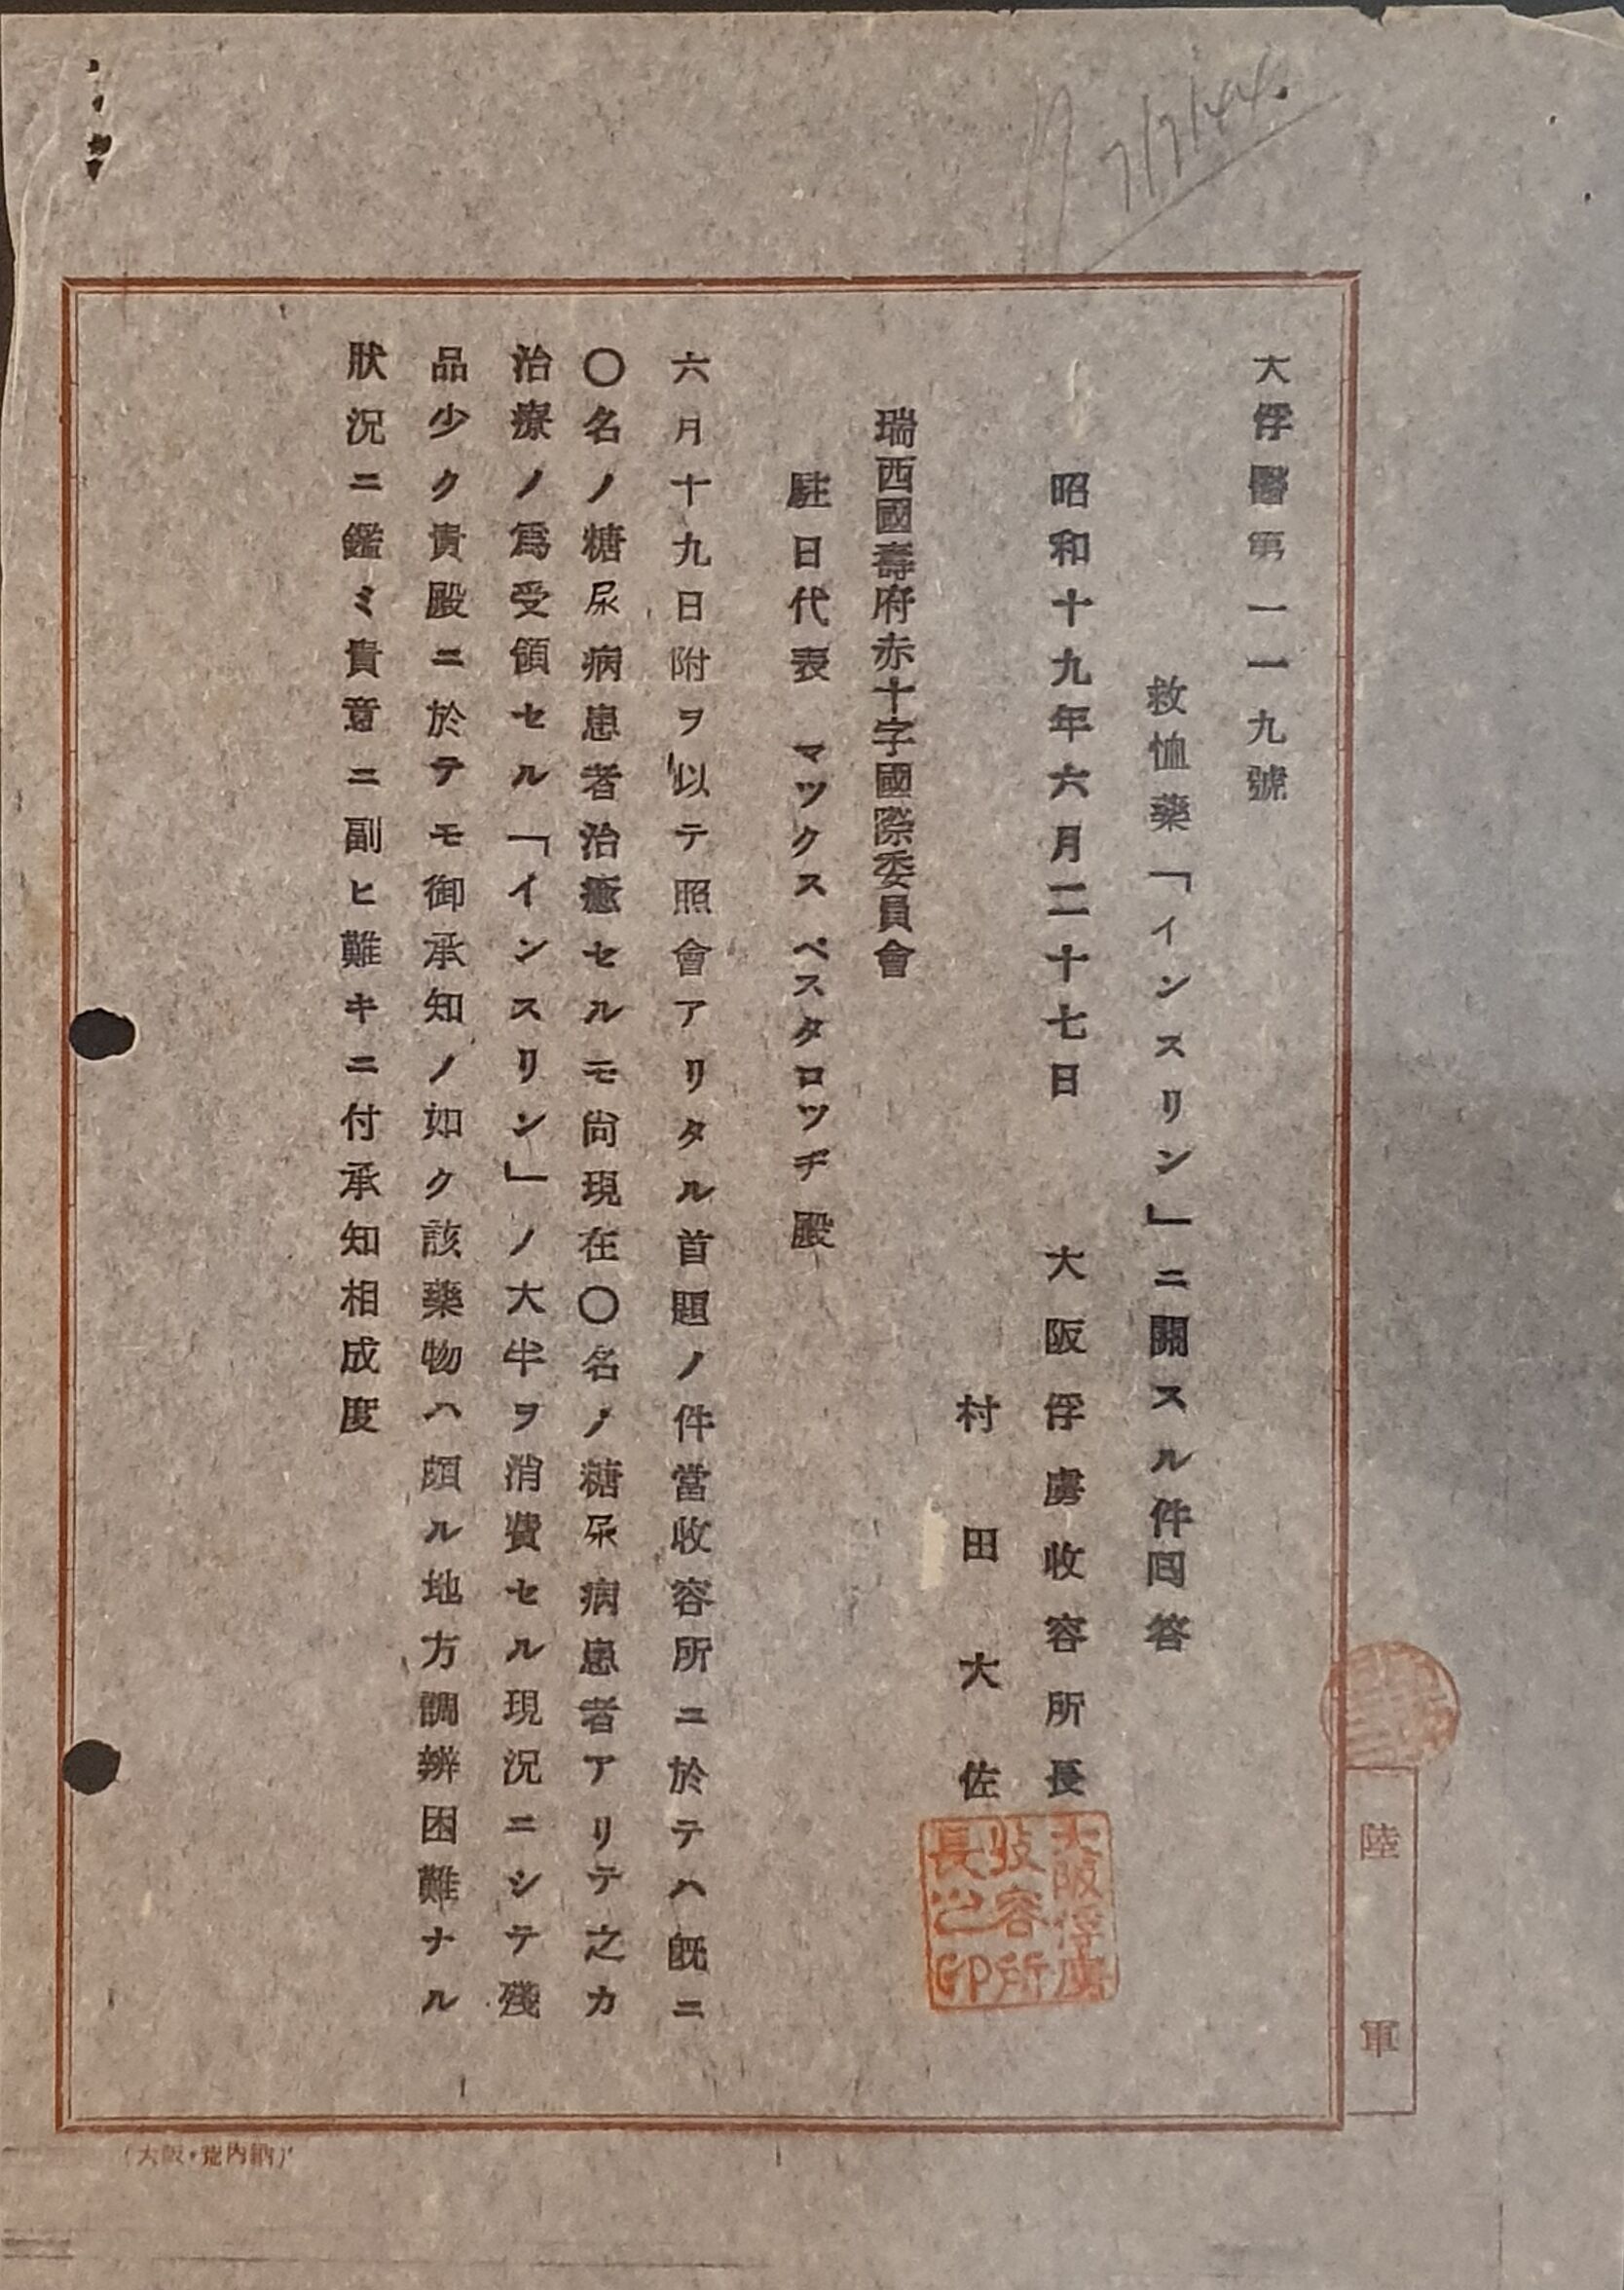 7/7/44.
大俘醫第一一一九號
救恤藥「インスリン」ニ關スル件回答
昭和十九年六月二十七日　大阪俘虜收容所長
村田大佐
大阪俘虜
收容所
長之印
瑞西國壽府赤十字國際委員會
駐日代表　マツクス　ペスタロツヂ殿
六月十九日附ヲ以テ照會アリタル首題ノ件當收容所ニ於テハ既ニ
〇名ノ糖尿病患者治癒セルモ尚現在〇名ノ糖尿病患者アリテ之カ
治療ノ爲受領セル「インスリン」ノ大半ヲ消費セル現況ニシテ殘
品少ク貴殿ニ於テモ御承知ノ如ク該藥物ハ頗ル地方調辨困難ナル
狀況ニ鑑ミ貴意ニ副ヒ難キニ付承知相成度
陸軍